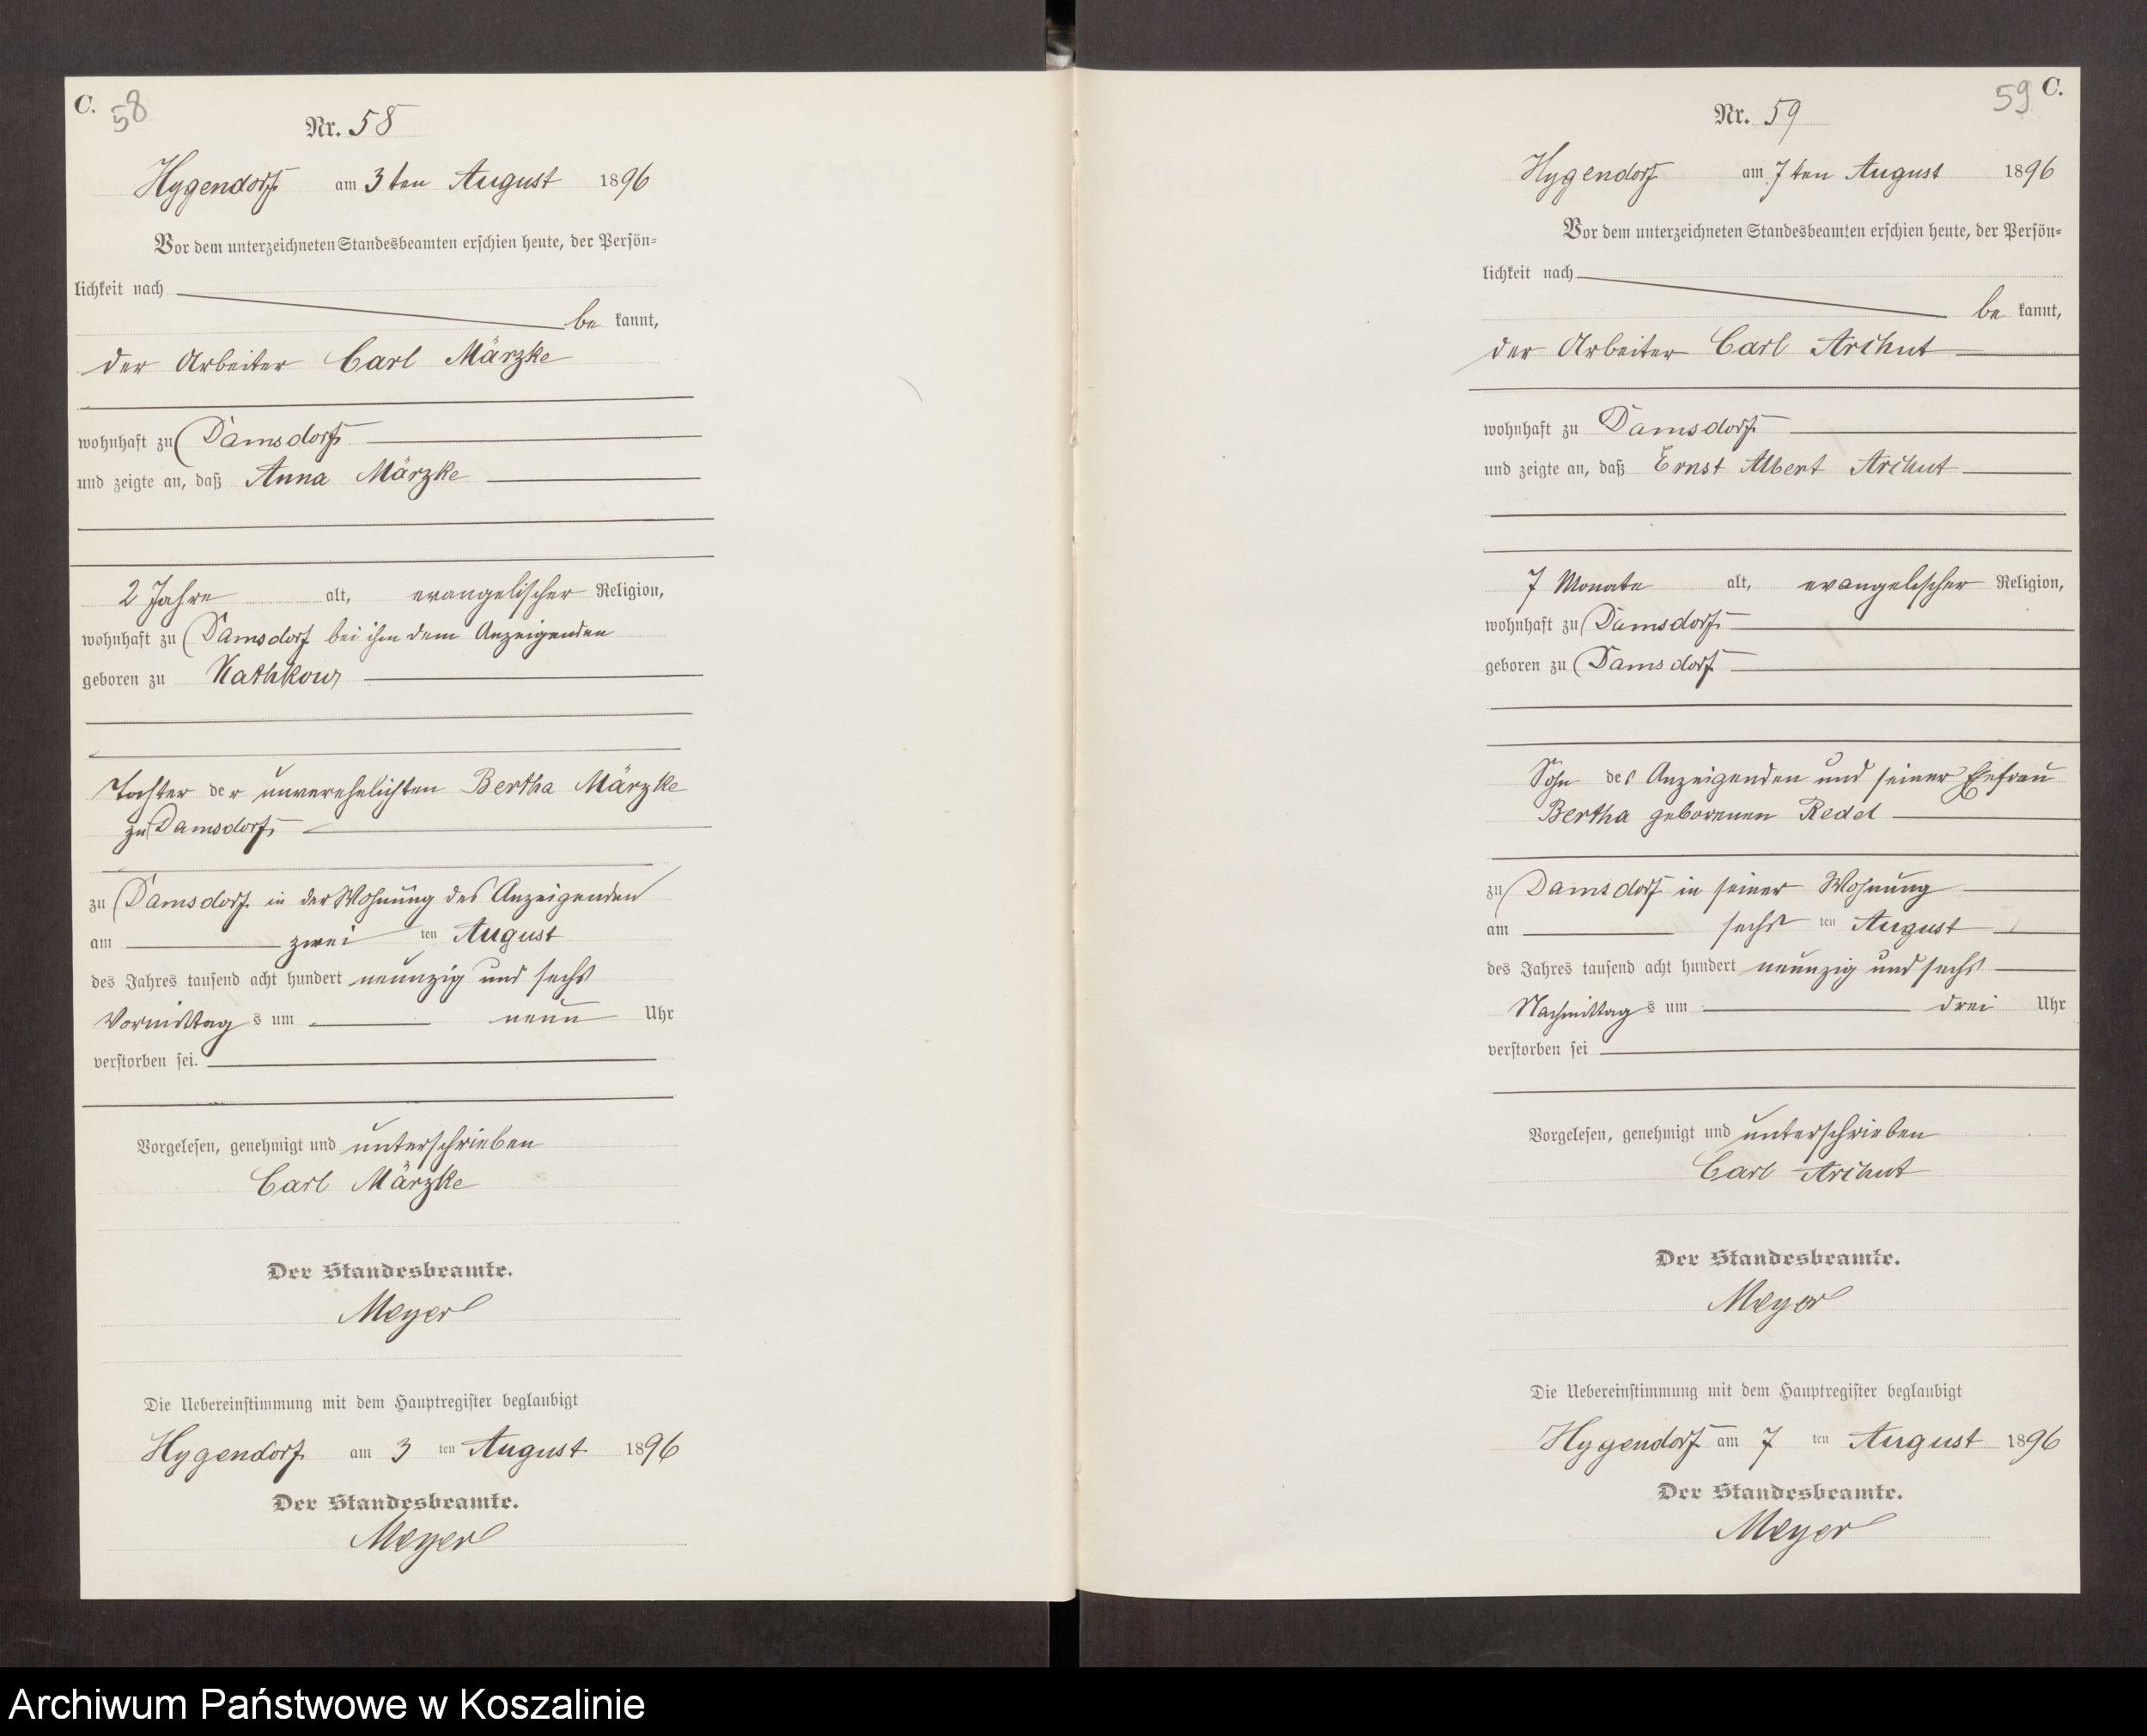 C.
58
Nr. 58
Hygendorf am 3ten August 1896
Vor dem unterzeichneten Standesbeamten erschien heute, der Persön=
lichkeit nach
be kannt,
der Arbeiter Carl Märzke
wohnhaft zu Damsdorf
und zeigte an, daß Anna Märzke
2 Jahre alt, evangelischer Religion,
wohnhaft zu Damsdorf bei ihm dem Anzeigenden
geboren zu Kathkow
Tochter der unverehelichten Bertha Märzke
zu Damsdorf
zu Damsdorf in der Wohnung des Anzeigenden
am zwei ten August
des Jahres tausend acht hundert neunzig und sechs
Vormittag s um neun Uhr
verstorben sei.
Vorgelesen, genehmigt und unterschrieben
Carl Märzke
Der Standesbeamte.
Meyer
Die Uebereinstimmung mit dem Hauptregister beglaubigt
Hygendorf am 3 ten August 1896
Der Standesbeamte.
Meyer
59 C.
Nr. 59
Hygendorf am 7ten August 1896
Vor dem unterzeichneten Standesbeamten erschien heute, der Persön=
lichkeit nach
be kannt,
der Arbeiter Carl Archut
wohnhaft zu Damsdorf
und zeigte an, daß Ernst Albert Archut
7 Monate alt, evangelischer Religion,
wohnhaft zu Damsdorf
geboren zu Damsdorf
Sohn des Anzeigenden und seiner Ehefrau
Bertha geborenen Redel
zu Damsdorf in seiner Wohnung
am sechs ten August
des Jahres tausend acht hundert neunzig und sechs
Nachmittag s um drei Uhr
verstorben sei
Vorgelesen, genehmigt und unterschrieben
Carl Archut
Der Standesbeamte.
Meyer
Die Uebereinstimmung mit dem Hauptregister beglaubigt
Hygendorf am 7 ten August 1896
Der Standesbeamte.
Meyer
Archiwum Państwowe w Koszalinie